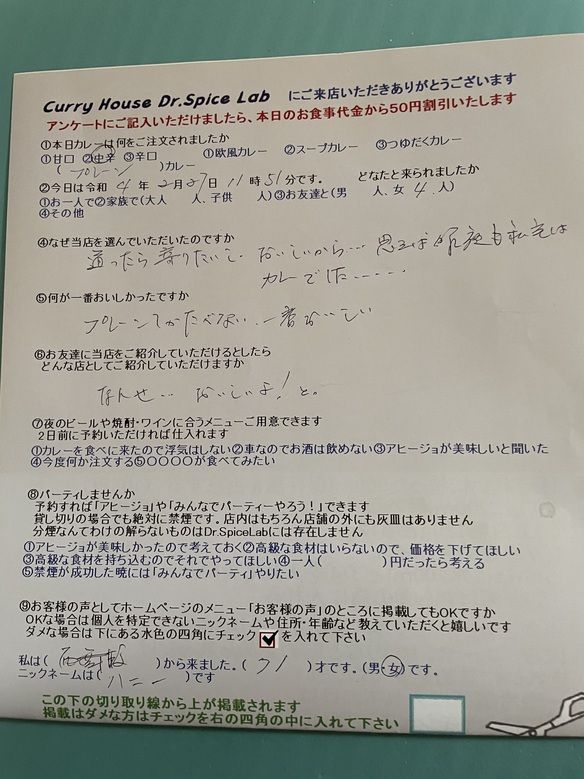 Curry House Dr.Spice Lab にご来店いただきありがとうございます
アンケートにご記入いただけましたら、本日のお食事代金から50円割引いたします
①本日カレーは何をご注文されましたか
①甘口 ②中辛 ③辛口 ①欧風カレー ②スープカレー ③つゆだくカレー
( プレーン )カレー
②今日は令和 4 年 2月27日 11時51分です。 どなたと来られましたか
①お一人で②家族で(大人 人、子供 人)③お友達と(男 人、女 4 人)
④その他
④なぜ当店を選んでいただいたのですか
通ったら寄りたいし おいしいから… 思えば昨夜も私宅は
カレーでした……
⑤何が一番おいしかったですか
プレーンしかたべない、一番おいしい
⑥お友達に当店をご紹介していただけるとしたら
どんな店としてご紹介していただけますか
なんせ… おいしいよ!と。
⑦夜のビールや焼酎・ワインに合うメニューご用意できます
2日前に予約いただければ仕入れます
①カレーを食べに来たので浮気はしない②車なのでお酒は飲めない③アヒージョが美味しいと聞いた
④今度何か注文する⑤〇〇〇〇が食べてみたい
⑧パーティしませんか
予約すれば「アヒージョ」や「みんなでパーティーやろう！」できます
貸し切りの場合でも絶対に禁煙です。店内はもちろん店舗の外にも灰皿はありません
分煙なんてわけの解らないものはDr.SpiceLabには存在しません
①アヒージョが美味しかったので考えておく②高級な食材はいらないので、価格を下げてほしい
③高級な食材を持ち込むのでそれでやってほしい④一人( )円だったら考える
⑤禁煙が成功した暁には「みんなでパーティ」やりたい
⑨お客様の声としてホームページのメニュー「お客様の声」のところに掲載してもOKですか
OKな場合は個人を特定できないニックネームや住所・年齢など教えていただくと嬉しいです
ダメな場合は下にある水色の四角にチェック を入れて下さい
私は( )から来ました。( 71 )才です。(男・女)です。
ニックネームは( ハニー )です
この下の切り取り線から上が掲載されます
掲載はダメな方はチェックを右の四角の中に入れて下さい